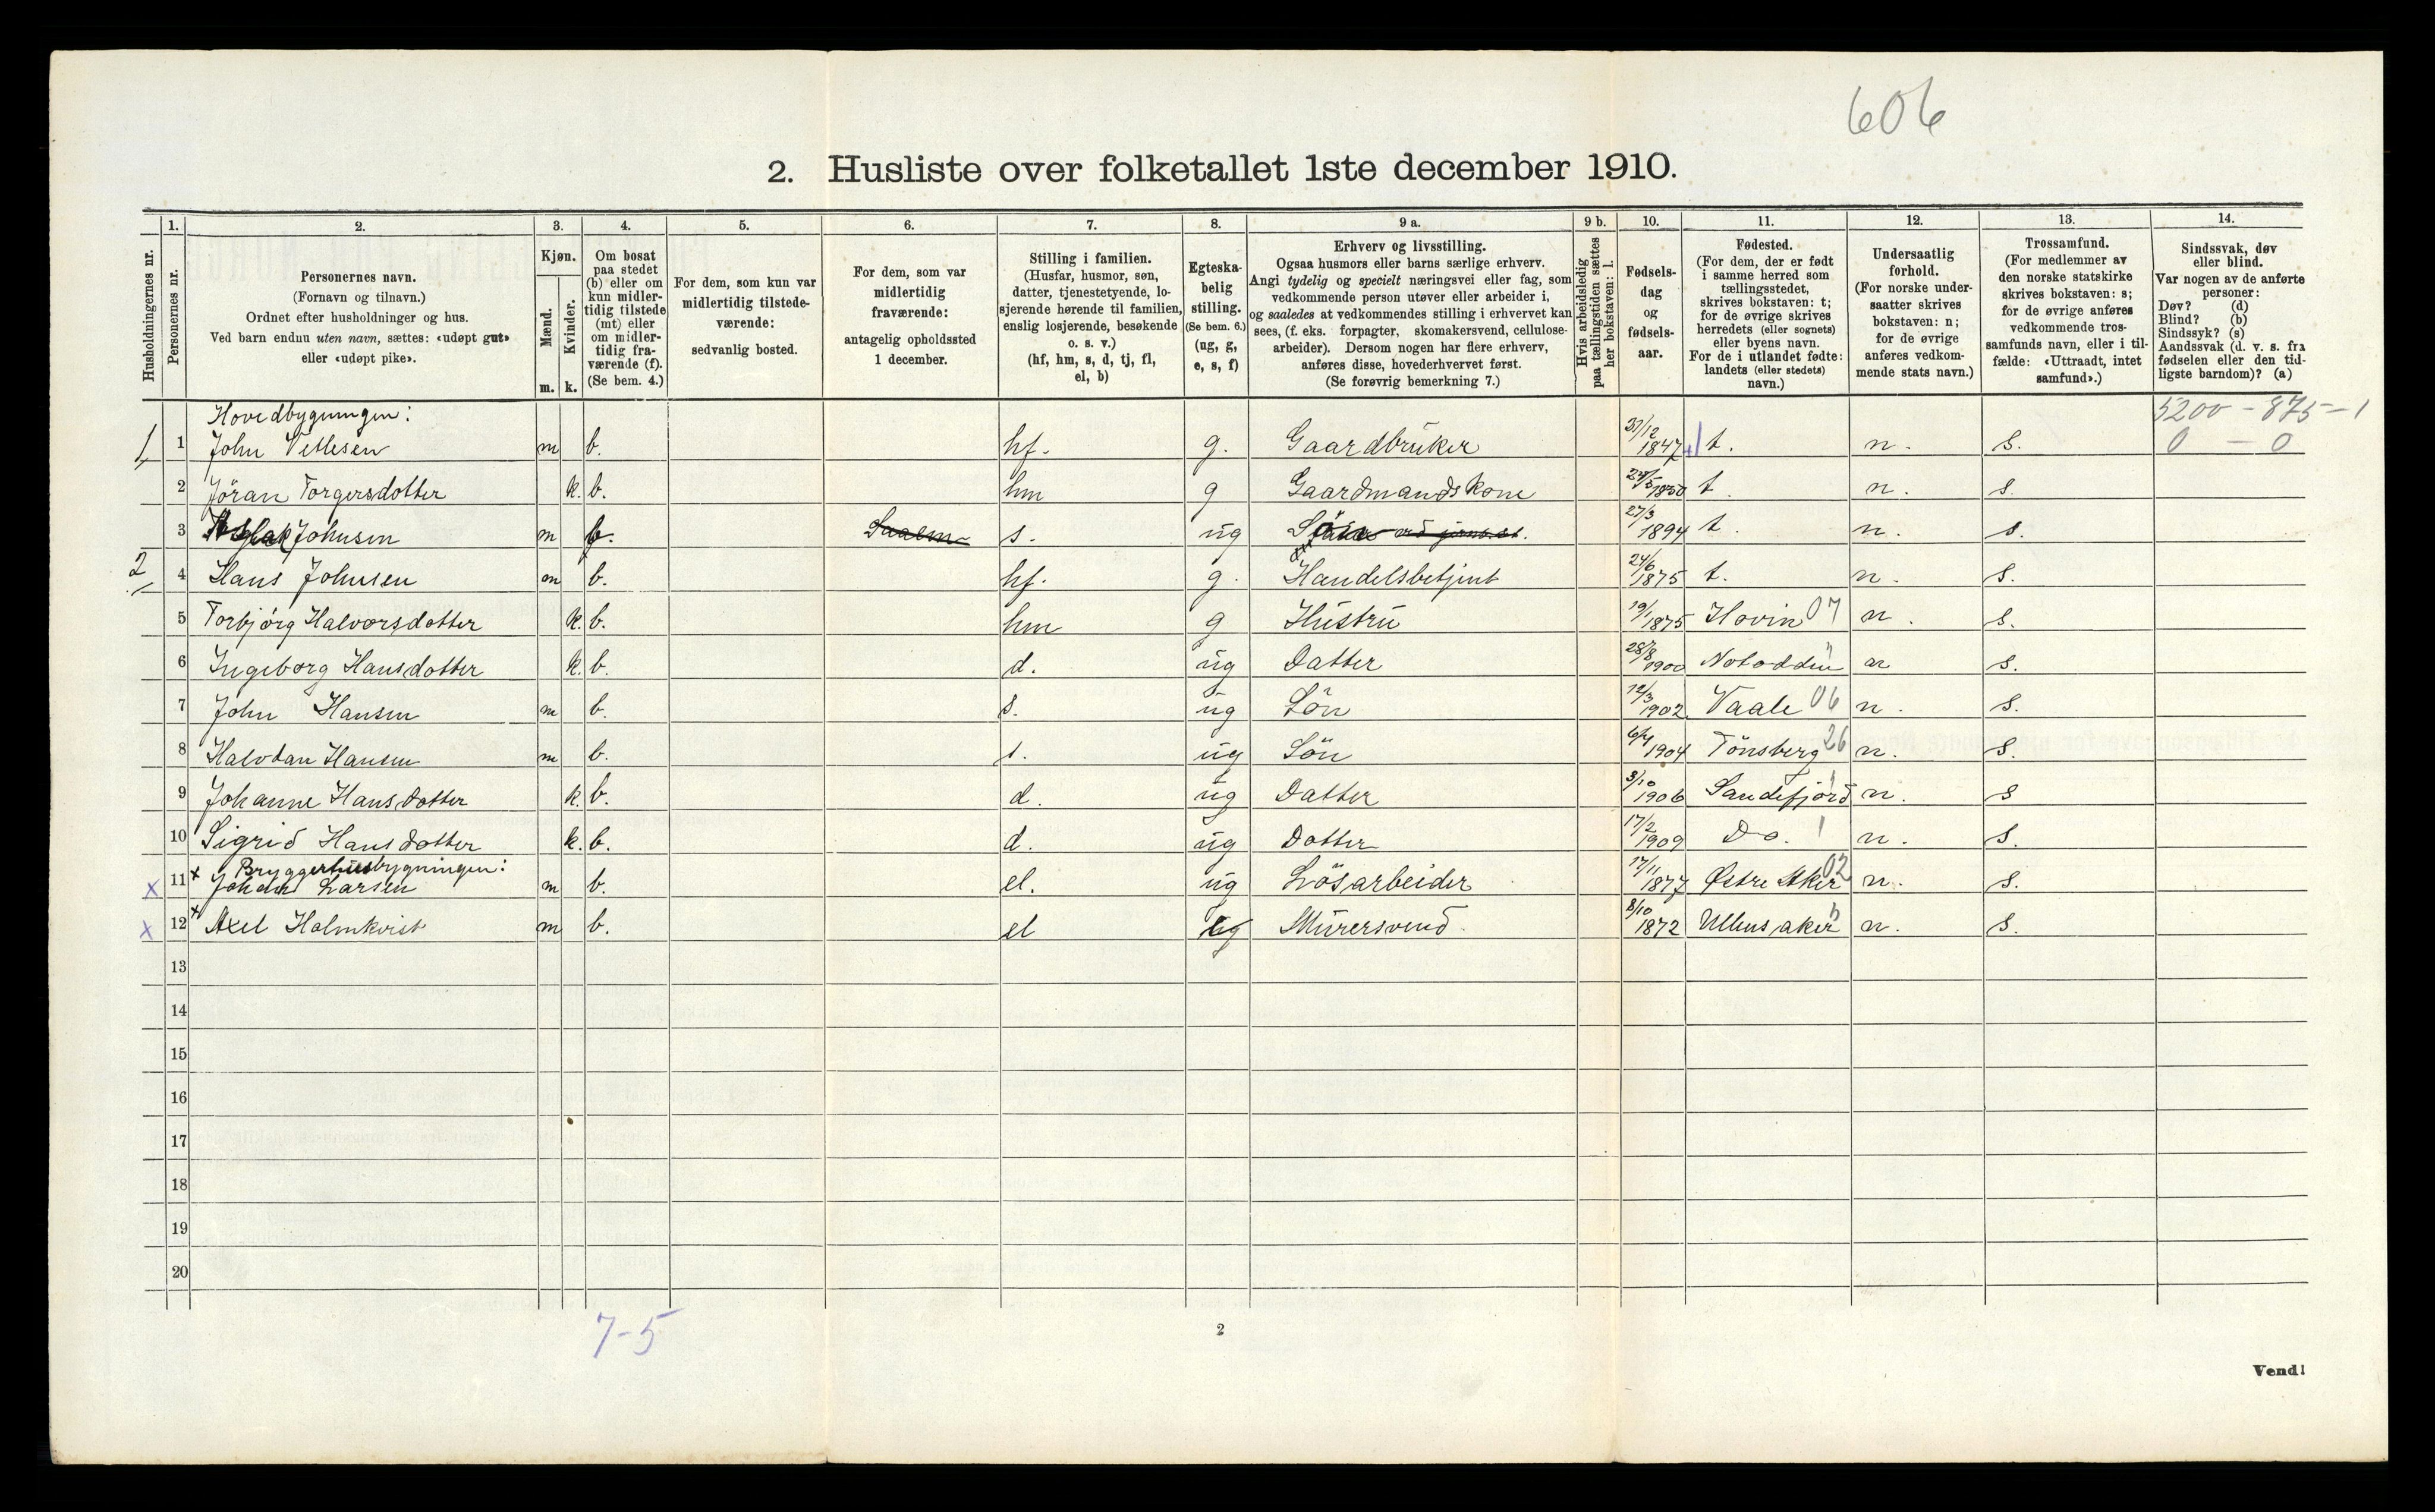 606
2. Husliste over folketallet 1ste december 1910.
Husholdningernes nr.
1. Personernes nr.
2. Personernes navn. (Fornavn og tilnavn.) Ordnet efter husholdninger og hus. Ved barn endnu uten navn, sættes: «udøpt gut» eller «udøpt pike».
3. Kjøn. Mænd. m. Kvinder. k.
4. Om bosat paa stedet (b) eller om kun midlertidig tilstede (mt) eller om midlertidig fraværende (f). (Se bem. 4.)
5. For dem, som kun var midlertidig tilstedeværende: sedvanlig bosted.
6. For dem, som var midlertidig fraværende: antagelig opholdssted 1 december.
7. Stilling i familien. (Husfar, husmor, søn, datter, tjenestetyende, losjerende hørende til familien, enslig losjerende, besøkende o. s. v.) (hf, hm, s, d, tj, fl, el, b)
8. Egteskabelig stilling. (Se bem. 6.) (ug, g, e, s, f)
9 a. Erhverv og livsstilling. Ogsaa husmors eller barns særlige erhverv. Angi tydelig og specielt næringsvei eller fag, som vedkommende person utøver eller arbeider i, og saaledes at vedkommendes stilling i erhvervet kan sees, (f. eks. forpagter, skomakersvend, cellulosearbeider). Dersom nogen har flere erhverv, anføres disse, hovederhvervet først. (Se forøvrig bemerkning 7.)
9 b. Hvis arbeidsledig paa tællingstiden sættes her bokstaven: l.
10. Fødselsdag og fødselsaar.
11. Fødested. (For dem, der er født i samme herred som tællingsstedet, skrives bokstaven: t; for de øvrige skrives herredets (eller sognets) eller byens navn. For de i utlandet fødte: landets (eller stedets) navn.)
12. Undersaatlig forhold. (For norske undersaatter skrives bokstaven: n; for de øvrige anføres vedkommende stats navn.)
13. Trossamfund. (For medlemmer av den norske statskirke skrives bokstaven: s; for de øvrige anføres vedkommende trossamfunds navn, eller i tilfælde: «Uttraadt, intet samfund».)
14. Sindssvak, døv eller blind. Var nogen av de anførte personer: Døv? (d) Blind? (b) Sindssyk? (s) Aandssvak (d. v. s. fra fødselen eller den tidligste barndom)? (a)
Hovedbygningen: 5200 - 875 - 1
1 1 John Vetlesen m b. hf. g. Gaardbruker 31/12 1847 t. n. s. 0 - 0
2 Jöran Torgersdotter k. b. hm g Gaardmandskone 1850 t n. s.
3 Johnsen m b. s. ug 27/3 1894 t. n. s.
2 4 Hans Johnsen m b. hf. g. Handelsbetjent 24/6 1875 t. n. s.
5 Torbjörg Halvorsdotter k. b. hm g Hustru 19/1 1875 Hovin 07 n. s.
6 Ingeborg Hansdotter k. b. d. ug Datter 28/8 1900 Notodden n s.
7 John Hansen m b. s. ug Sön 12/3 1902 Vaale 06 n. s.
8 Halvdan Hansen m b. s. ug Sön 6/4 1904 Tönsberg 26 n. s.
9 Johanne Hansdotter k. b. d. ug Datter 3/10 1906 Sandefjord n. s
10 Sigrid Hansdotter k. b. d. ug Dotter 17/2 1909 Do. n. s.
Bryggerhusbygningen:
x 11 x Johan Larsen m b. el. ug Lösarbeider 17/11 1877 Østre Aker 02 n. s.
x 12 x Axel Holmkvist m b. el ug Murersvend 8/10 1872 Ullensaker n. s.
13
14
15
16
17
18
19
20
7-5
2
Vend!